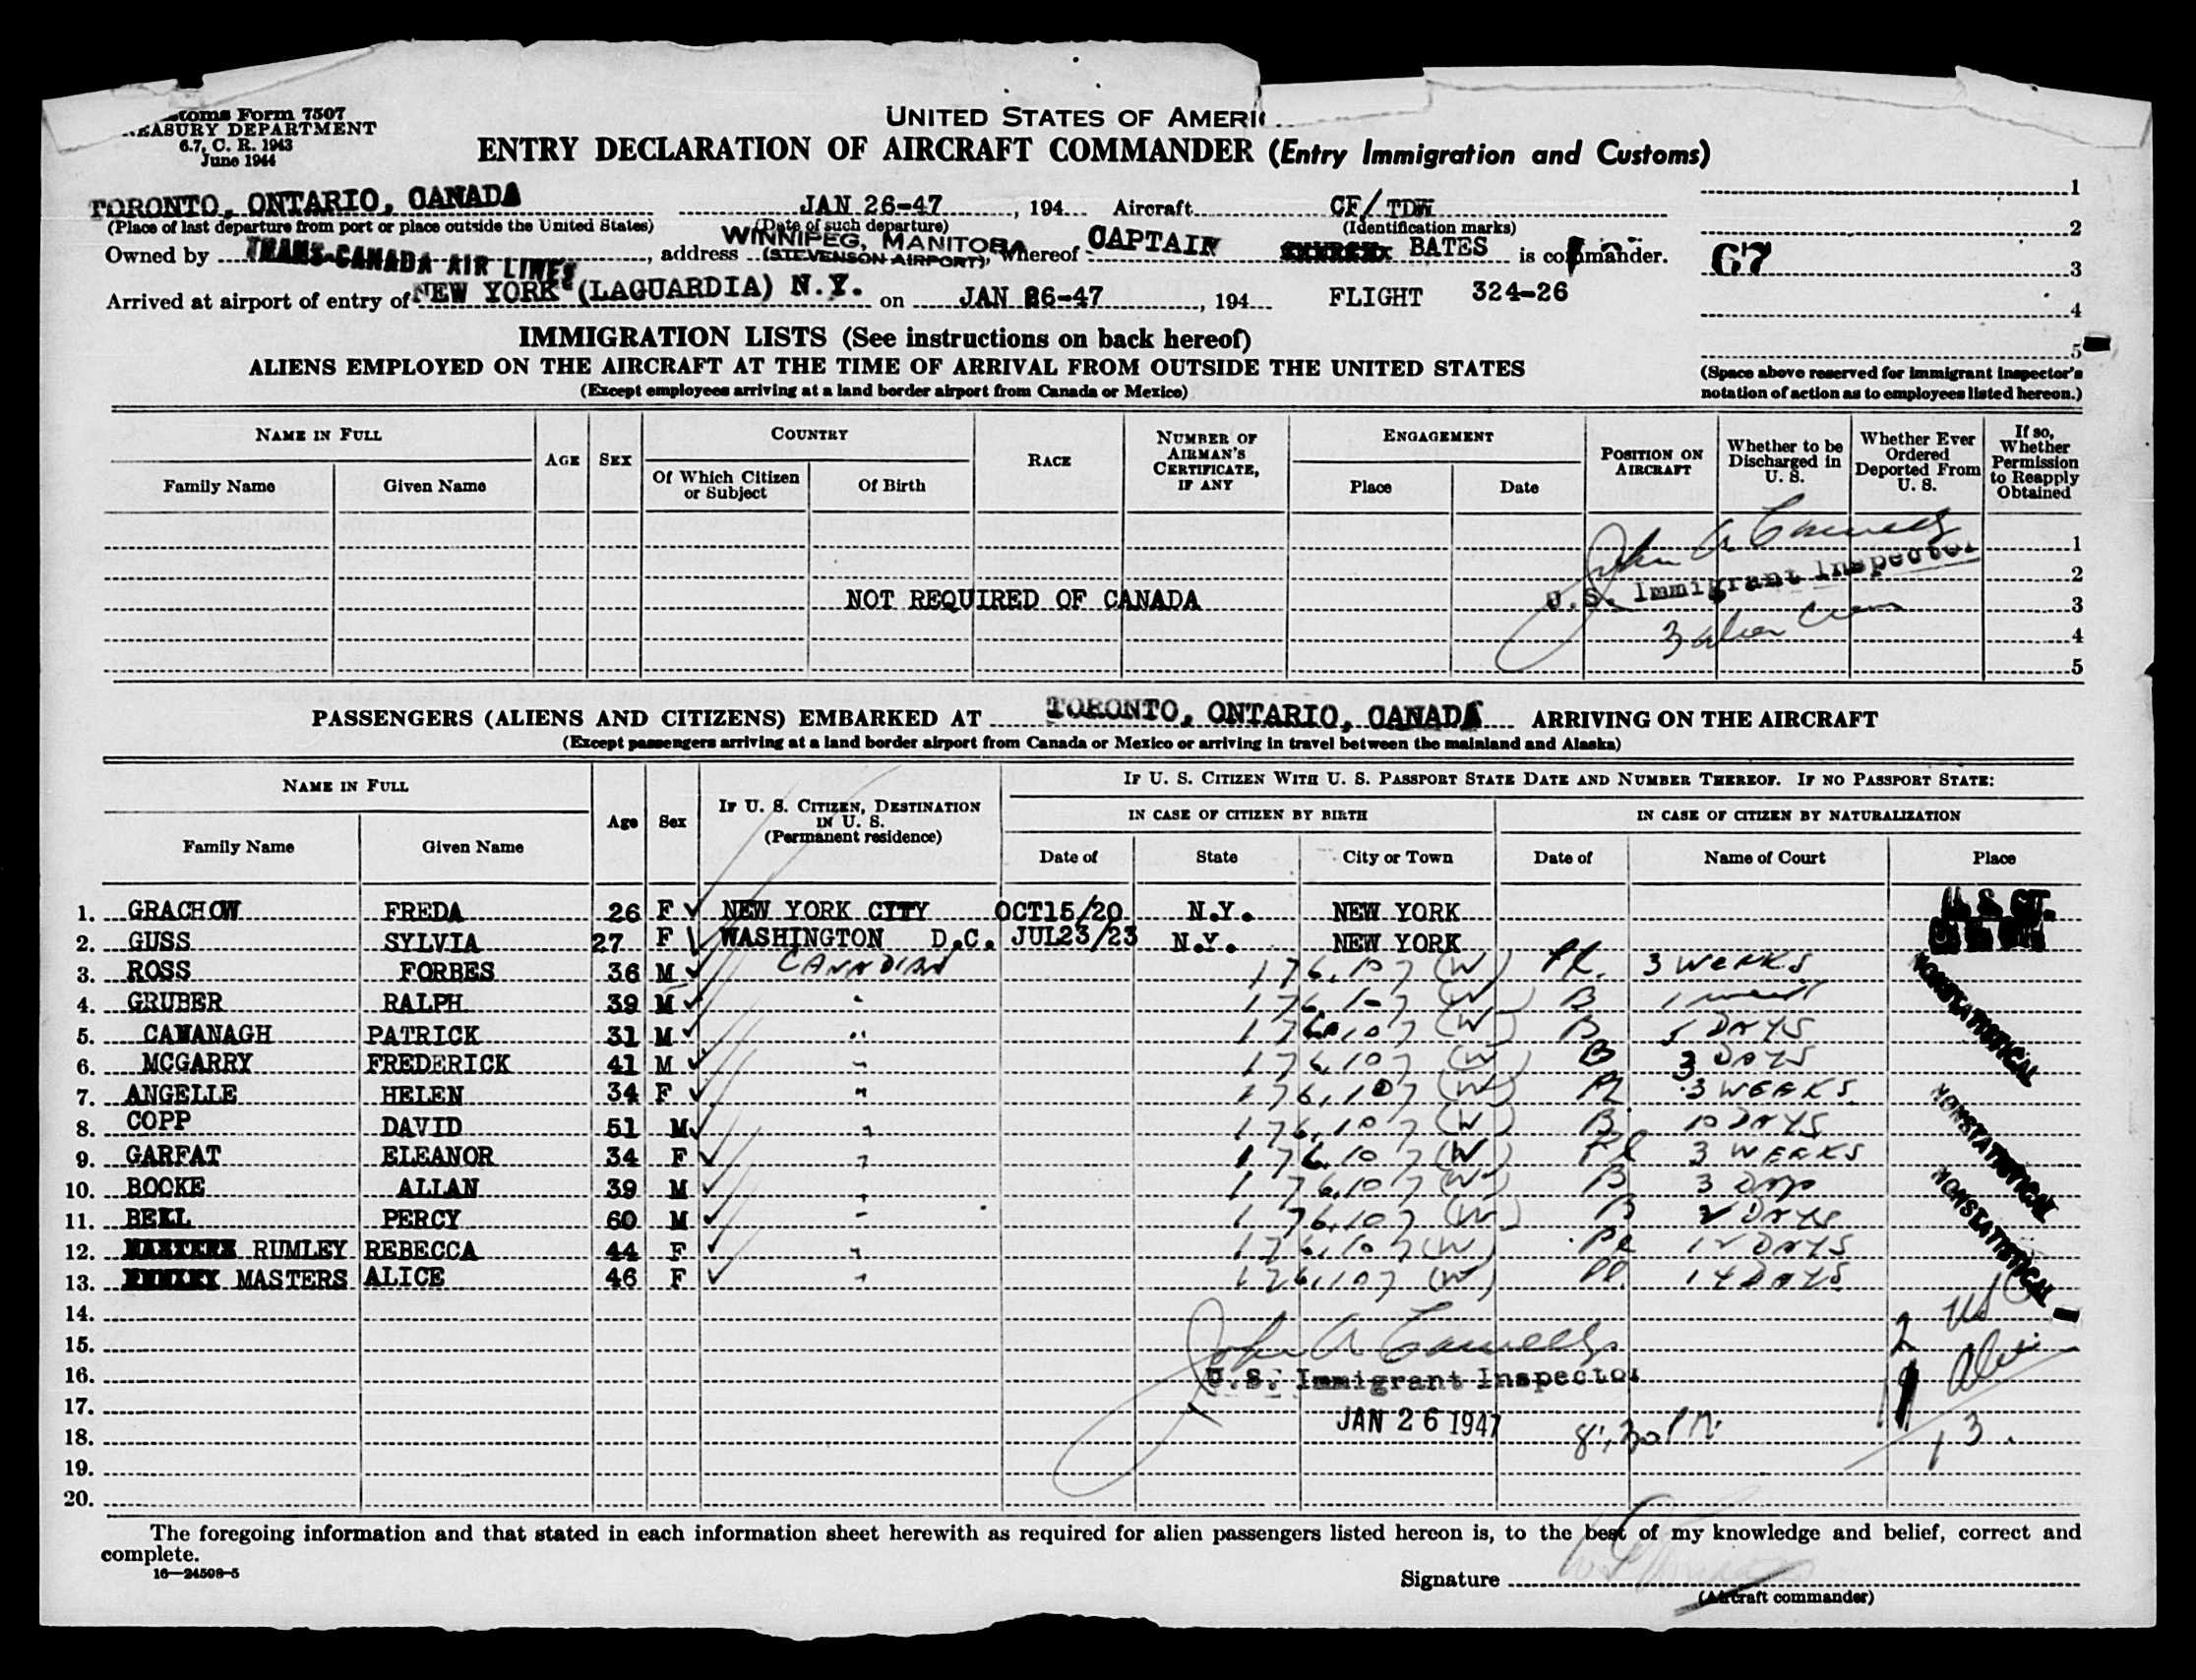 UNITED STATES OF AMERI
toms Form 7507
EASURY DEPARTMENT
6.7, C. R. 1943
June 1944
ENTRY DECLARATION OF AIRCRAFT COMMANDER (Entry Immigration and Customs)
TORONTO, ONTARIO, CANADA JAN 26-47, 194 Aircraft CF/ TDW 1
(Place of last departure from port or place outside the United States) (Date of such departure) (Identification marks) 2
Owned by TRANS-CANADA AIR LINES, address WINNIPEG, MANITOBA (STEVENSON AIRPORT), whereof CAPTAIN BATES is commander. 67 3
Arrived at airport of entry of NEW YORK (LAGUARDIA) N.Y. on JAN 26-47, 194 FLIGHT 324-26 4
5
IMMIGRATION LISTS (See instructions on back hereof)
ALIENS EMPLOYED ON THE AIRCRAFT AT THE TIME OF ARRIVAL FROM OUTSIDE THE UNITED STATES
(Except employees arriving at a land border airport from Canada or Mexico)
(Space above reserved for immigrant inspector's
notation of action as to employees listed hereon.)
NAME IN FULL AGE SEX COUNTRY RACE NUMBER OF AIRMAN'S CERTIFICATE, IF ANY ENGAGEMENT POSITION ON AIRCRAFT Whether to be Discharged in U. S. Whether Ever Ordered Deported From U. S. If so, Whether Permission to Reapply Obtained
Family Name Given Name Of Which Citizen or Subject Of Birth Place Date
John A 1
U.S. Immigrant Inspector 2
NOT REQUIRED OF CANADA 3
3 alien crew 4
5
PASSENGERS (ALIENS AND CITIZENS) EMBARKED AT TORONTO, ONTARIO, CANADA ARRIVING ON THE AIRCRAFT
(Except passengers arriving at a land border airport from Canada or Mexico or arriving in travel between the mainland and Alaska)
NAME IN FULL Age Sex IF U. S. CITIZEN, DESTINATION IN U. S. (Permanent residence) IF U. S. CITIZEN WITH U. S. PASSPORT STATE DATE AND NUMBER THEREOF. IF NO PASSPORT STATE:
IN CASE OF CITIZEN BY BIRTH IN CASE OF CITIZEN BY NATURALIZATION
Family Name Given Name Date of State City or Town Date of Name of Court Place
1. GRACHOW FREDA 26 F NEW YORK CITY OCT15/20 N.Y. NEW YORK U S CIT.
2. GUSS SYLVIA 27 F WASHINGTON D.C. JUL23/23 N.Y. NEW YORK
3. ROSS FORBES 36 M CANADIAN 176.107 (W) Pl. 3 WEEKS NONSTATISTICAL
4. GRUBER RALPH 39 M " 176.107 (W) B 1 week
5. CAVANAGH PATRICK 31 M " 176.107 (W) B 5 DAYS
6. MCGARRY FREDERICK 41 M " 176.107 (W) B 3 DAYS
7. ANGELLE HELEN 34 F " 176.107 (W) Pl 3 WEEKS. NONSTATISTICAL
8. COPP DAVID 51 M " 176.107 (W) B 10 DAYS
9. GARFAT ELEANOR 34 F " 176.107 (W) Pl 3 WEEKS
10. BOOKE ALLAN 39 M " 176.107 (W) B 3 Days NONSTATISTICAL
11. BELL PERCY 60 M " 176.107 (W) B 2 DAYS
12. RUMLEY REBECCA 44 F " 176.107 (W) Pl 12 DAYS
13. MASTERS ALICE 46 F " 176.107 (W) Pl 14 DAYS
14. 2 US
15. John A
16. U.S. Immigrant Inspector 11 Alien
17. JAN 26 1947
18. 8:30 PM 13.
19.
20.
The foregoing information and that stated in each information sheet herewith as required for alien passengers listed hereon is, to the best of my knowledge and belief, correct and
complete.
16—24508-5
Signature
(Aircraft commander)